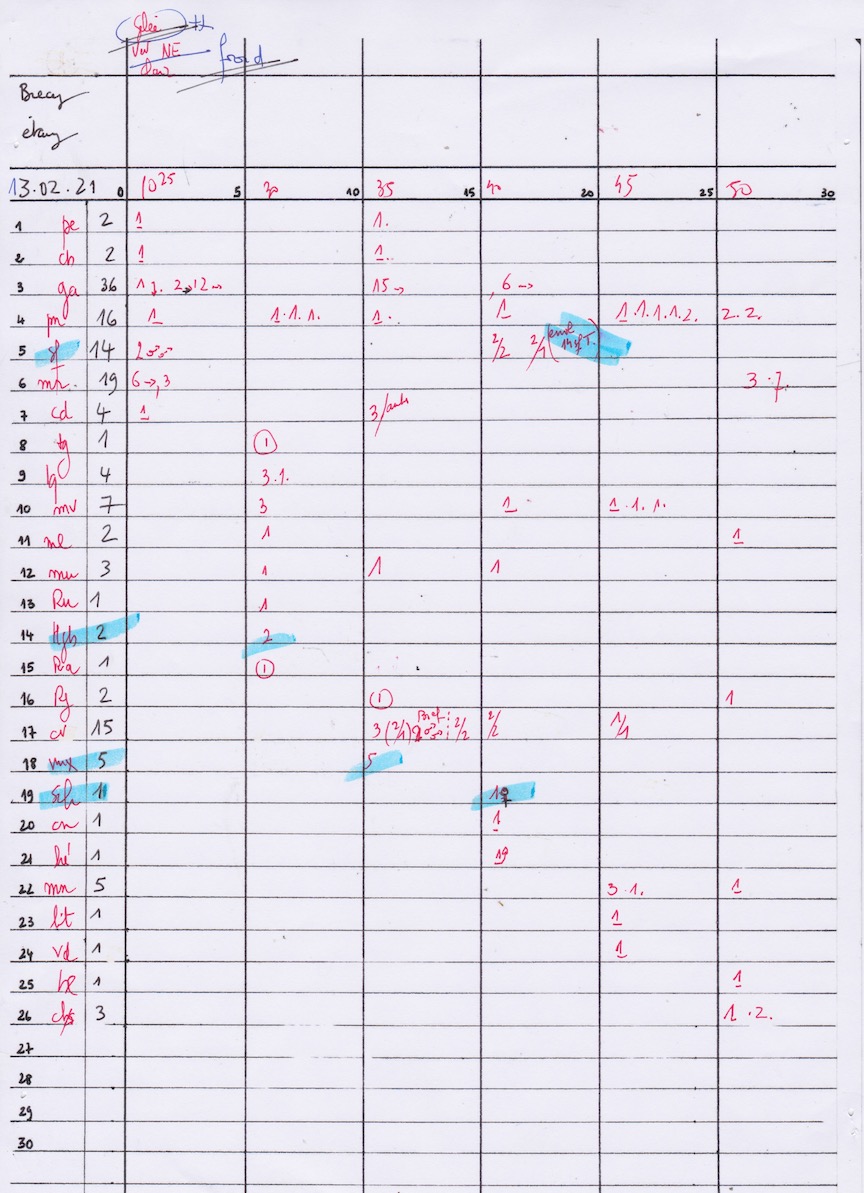 Gelé tt
Vent NE froid
Brecy
étang
13.02.21 0 10 25 5 30 10 35 15 40 20 45 25 50 30
1 pe 2 1 1.
2 ch 2 1 1.
3 ga 36 12→ 15→ 6→
4 pn 16 1 1.1.1. 1. 1 1.1.1.1.2. 2.2.
5 14 2 2/2 2/1
6 19 6→,3 3.7.
7 cd 4 1 3/
8 tg 1 1
9 4 3.1.
10 mv 7 3 1 1.1.1.
11 me 2 1 1
12 mu 3 1 1 1
13 Ru 1 1
14 Hgb 2 2
15 Ra 1 1
16 Rg 2 1 1
17 cv 15 3 (2/1) 2/2 2/2 1/1
18 5 5
19 1 1♀
20 cn 1 1
21 hé 1 19
22 mn 5 3.1. 1
23 lit 1 1
24 vd 1 1
25 be 1 1
26 3 1.2.
27
28
29
30